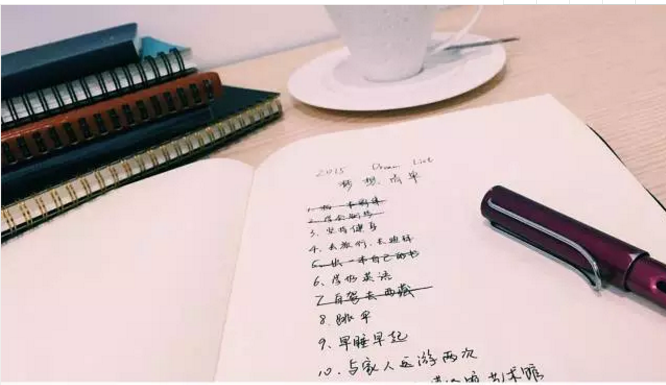 2015 Dream List
梦想清单
1.
2. 学会游泳
3. 坚持健身
4. 去厦门、
5. 出一本自己的书
6、学好英语
7、自驾去西藏
8、跳伞
9、早睡早起
10、与家人远游两次
艺术馆